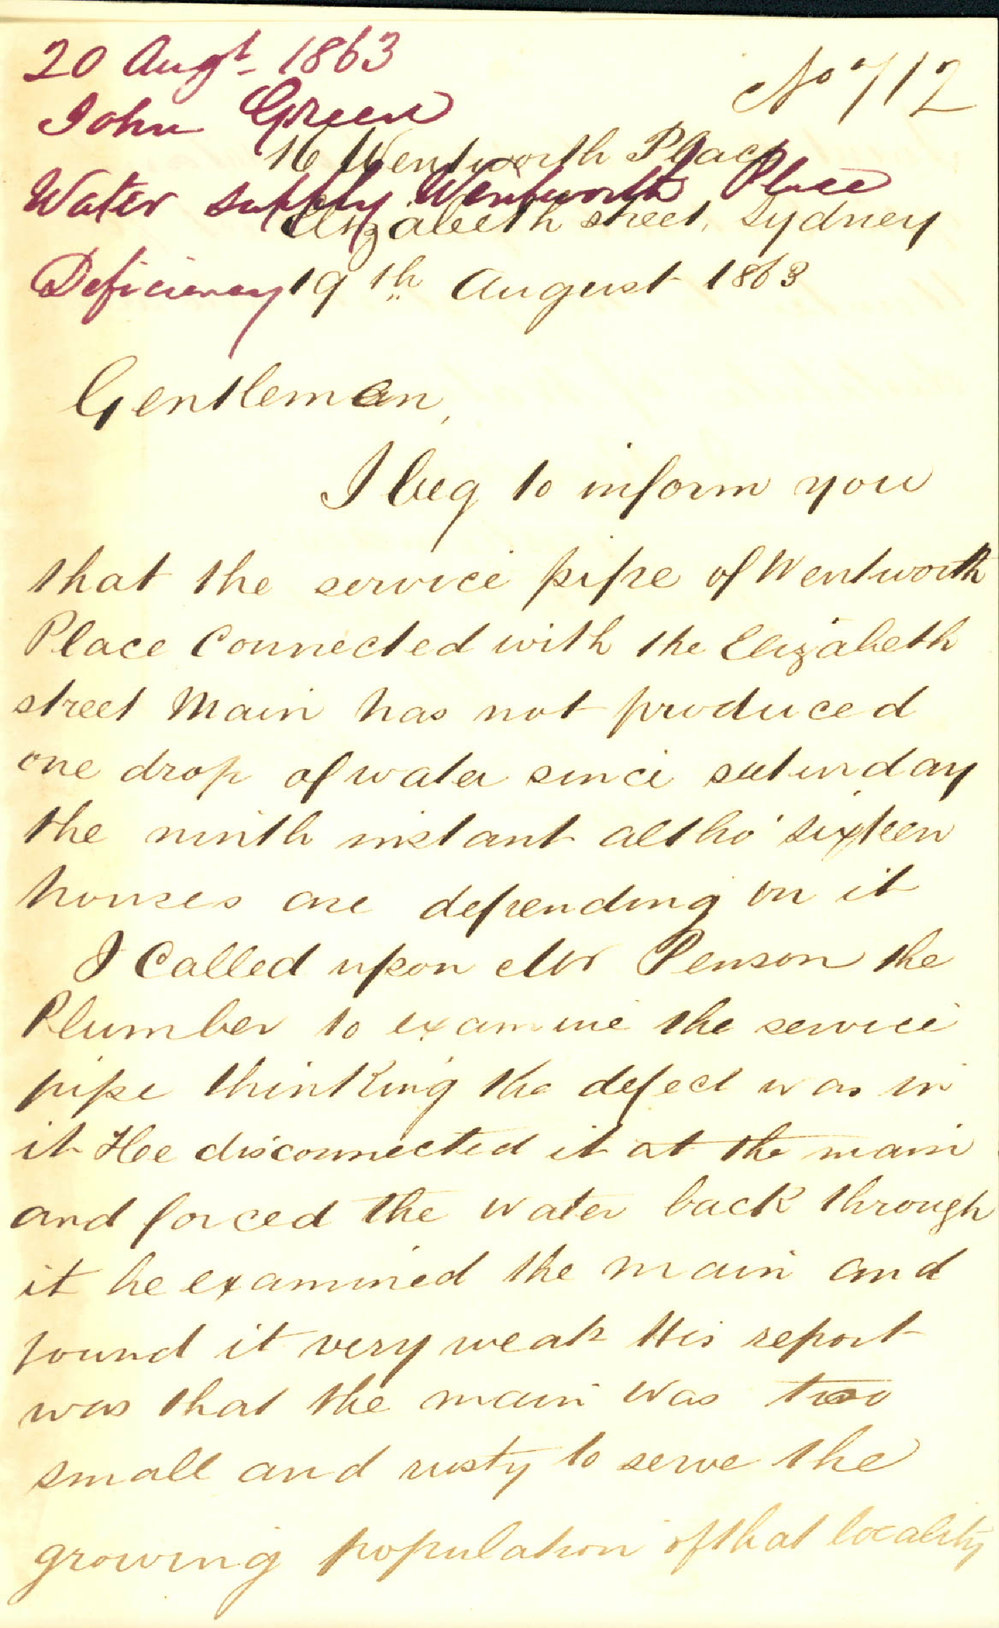 20 Augt. 1863
No 712
John Green
16 Wentworth Place
Water supply Wentworth Place
Elizabeth street, Sydney
Deficiency
19th August 1863
Gentlemen,
I beg to inform you
that the service pipe of Wentworth
Place Connected with the Elizabeth
street Main has not produced
one drop of water since saturday
the ninth instant altho' sixteen
houses are depending on it
I Called upon Mr Penson the
Plumber to examine the service
pipe thinking the defect was in
it Hee disconnected it at the main
and forced the water back through
it he examined the main and
found it very weak His report
was that the main was too
small and rusty to serve the
growing population of that locality